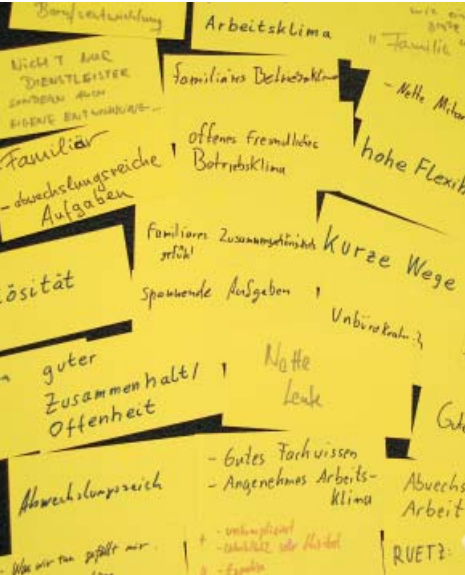 Berufsentwicklung
Arbeitsklima
wie eine
große
"Familie"
NICHT NUR
DIENSTLEISTER
SONDERN AUCH
EIGENE ENTWICKLUNG...
familiäres Betriebsklima
- Nette Mitar
Familiär
- abwechslungsreiche
Aufgaben
offenes freundliches
Betriebsklima
hohe Flexib
Familiäres Zusammengehörigkeits
gefühl
Kurze Wege
ösität
Spannende Aufgaben
Unbürokrat
guter
Zusammenhalt/
Offenheit
Nette
Leute
Gut
Abwechslungsreich
- Gutes Fachwissen
- Angenehmes Arbeits-
klima
Abwechs
Arbeit
- Was wir tun gefällt mir.
+ - unkompliziert
RUETZ: